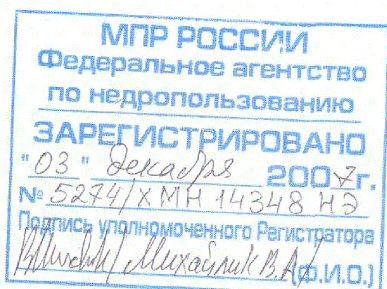 МПР РОССИИ
Федеральное агентство
по недропользованию
ЗАРЕГИСТРИРОВАНО
"03" декабря 2007г.
№ 5274/ХМН 14348 НЭ
Подпись уполномоченного Регистратора
/Михайлик В.А./ (Ф.И.О.)